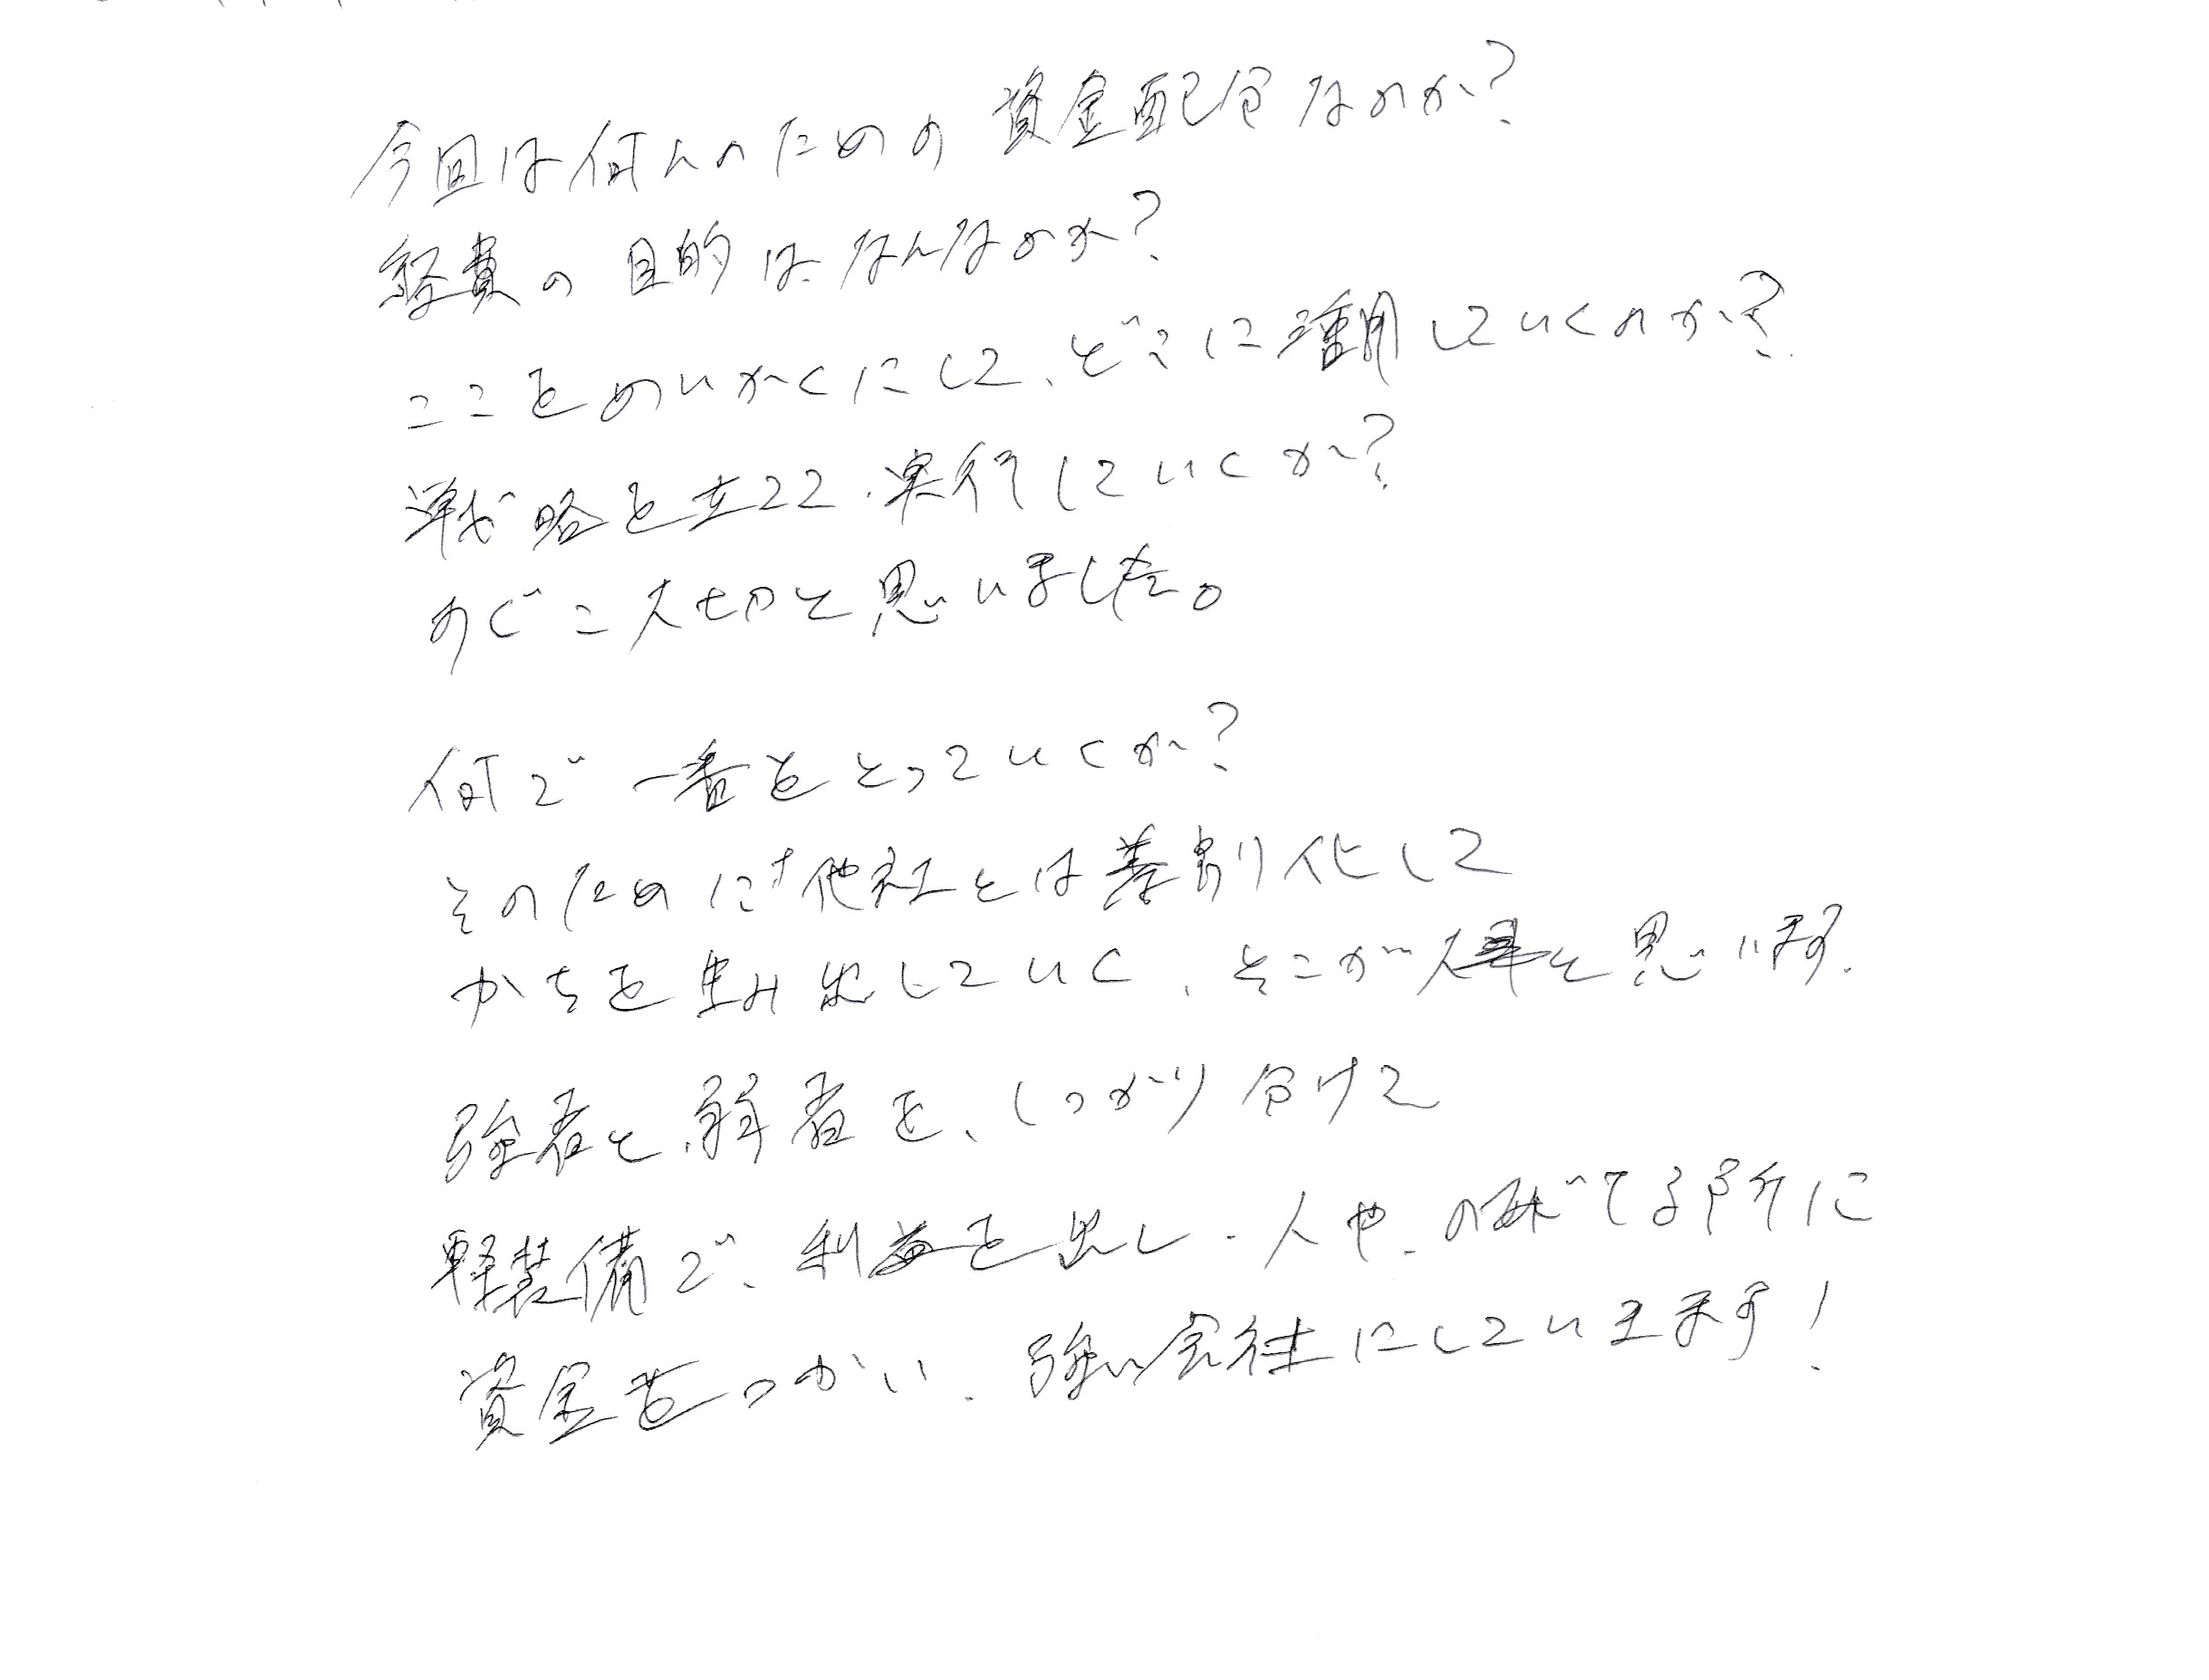 今回は何んのための資金配分なのか？
経費の目的は、なんなのか？
ここをめいかくにして、どこに運用していくのか？
戦略を立てて、実行していくか？
すごこ大切と思いました。
何で一番をとっていくか？
そのために他社とは差別化して
かちを生み出していく、そこが大事と思います。
強者と、弱者を、しっかり分けて
軽装備で、利益を出し、人や、のびてる所に
資金をつかい、強い会社にしていきます！